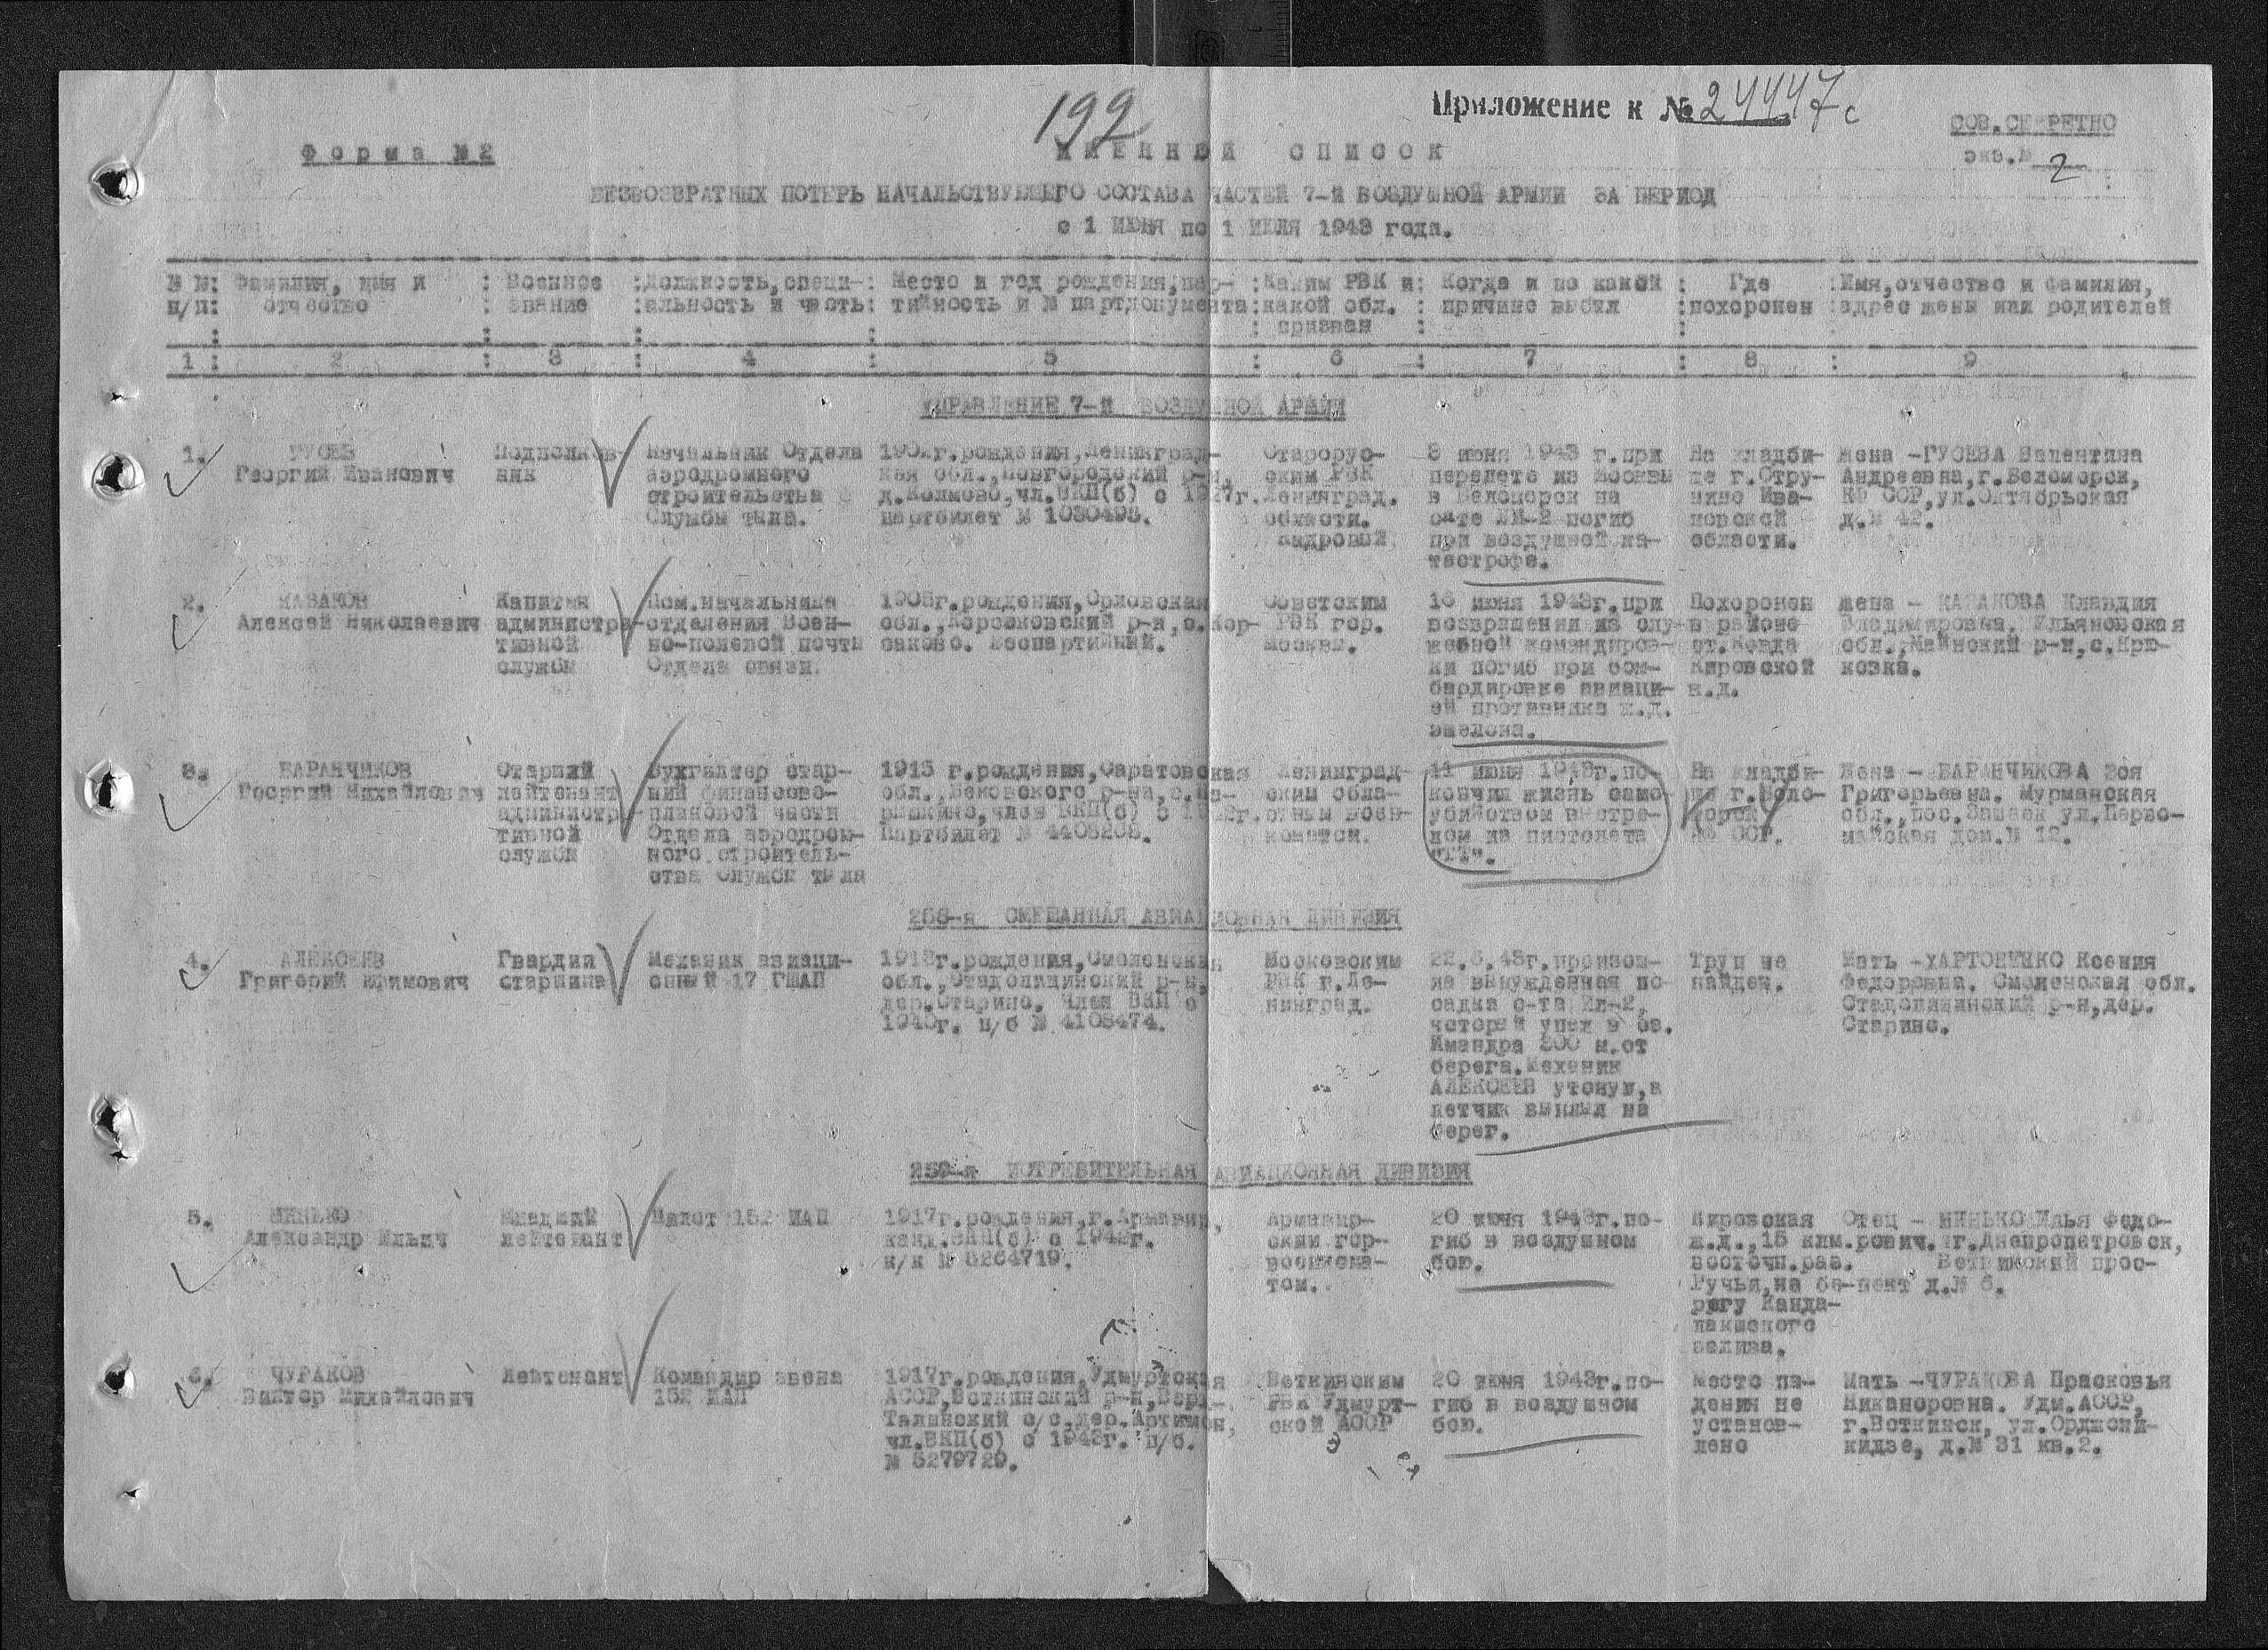 192
Приложение к № 24447с
СОВ.СЕКРЕТНО
экз.№ 2
Форма №2
ИМЕННОЙ СПИСОК
БЕЗВОЗВРАТНЫХ ПОТЕРЬ НАЧАЛЬСТВУЮЩЕГО СОСТАВА ЧАСТЕЙ 7-Й ВОЗДУШНОЙ АРМИИ ЗА ПЕРИОД
с 1 ИЮНЯ по 1 ИЮЛЯ 1943 года.
№ №: Фамилия, имя и : Военное :Должность,специ-: Место и год рождения,пар- :Каким РВК и: Когда и по какой : Где :Имя,отчество и фамилия,
п/п: отчество : звание :альность и часть: тийность и № партдокумента:какой обл. : причине выбыл :похоронен :адрес жены или родителей
: : : : : призван : :
1 : 2 : 3 : 4 : 5 : 6 : 7 : 8 : 9
УПРАВЛЕНИЕ 7-Й ВОЗДУШНОЙ АРМИИ
1. ГУСЕВ
Георгий Иванович
Подполков-
ник
Начальник Отдела
аэродромного
строительства
Службы тыла.
рождения,Ленинград-
кая обл.,Новгородский р-н,
д.Колмово,чл.ВКП(б) с 1927г.
партбилет № 1030493.
Старорус-
ским РВК
Ленинград.
области.
кадровый
8 июня 1943 г.при
перелете из Москвы
в Беломорск на
с-те ЛИ-2 погиб
при воздушной ка-
тастрофе.
На кладби-
ще г.Стру-
нино Ива-
новской
области.
Жена -ГУСЕВА Валентина
Андреевна,г.Беломорск,
КФ ССР,ул.Октябрьская
д.№ 42.
2. КАЗАКОВ
Алексей Николаевич
Капитан
администра-
тивной
службы
Пом.начальника
отделения Воен-
но-полевой почты
Отдела связи.
рождения,Орловская
обл.,Корсаковский р-н,с.Кор-
саково. Беспартийный.
Советским
РВК гор.
Москвы.
16 июня 1943г.при
возвращении из слу-
жебной командиров-
ки погиб при бом-
бардировке авиаци-
ей противника ж.д.
эшелона.
Похоронен
в районе
ст.
Кировской
ж.д.
Жена - КАЗАКОВА Клавдия
Владимировна, Ульяновская
обл.,Майнский р-н,с.Крю-
ковка.
3. БАРАНЧИКОВ
Георгий Михайлович
Старший
лейтенант
администра-
тивной
службы
Бухгалтер стар-
ший финансово-
плановой части
Отдела аэродром-
ного строитель-
ства Службы тыла
1913 г.рождения,Саратовская
обл.,Бековского р-на,
член ВКП(б) с
Партбилет №
Ленинград-
ским обла-
стным воен-
коматом.
11 июня 1943г.по-
кончил жизнь само-
убийством выстре-
лом из пистолета
"ТТ".
На кладби-
ще г.Бело-
морск
КФ ССР.
Жена - БАРАНЧИКОВА Зоя
Григорьевна. Мурманская
обл.,пос.Зашеек ул.Перво-
майская дом.№ 12.
258-я СМЕШАННАЯ АВИАЦИОННАЯ ДИВИЗИЯ
4. АЛЕКСЕЕВ
Григорий Ефимович
Гвардии
старшина
Механик авиаци-
онный 17 ГШАП
1918г.рождения,Смоленская
обл.,Стадолищинский р-н,
дер.Старино. Член ВКП с
1940г. п/б № 4108474.
Московским
РВК г.Ле-
нинград.
22.6.43г.произош-
ла вынужденная по-
садка с-та Ил-2,
который упал в оз.
Имандра 300 м.от
берега.Механик
АЛЕКСЕЕВ утонул,а
летчик выплыл на
берег.
Труп не
найден.
Мать -ХАРТОНЕНКО Ксения
Федоровна. Смоленская обл.
Стадолищинский р-н,дер.
Старино.
259-я ИСТРЕБИТЕЛЬНАЯ АВИАЦИОННАЯ ДИВИЗИЯ
5. МИНЬКО
Александр Ильич
Младший
лейтенант
Пилот 152 ИАП
1917г.рождения,г.Армавир,
канд.ВКП(б) с 1942г.
к/к № 5264719.
Армавир-
ским гор-
военкома-
том.
20 июня 1943г.по-
гиб в воздушном
бою.
Кировская
ж.д.,15 клм.
восточн.раз.
Ручьи,на бе-
регу Канда-
лакшского
залива.
Отец - МИНЬКО Илья Федо-
рович. г.Днепропетровск,
прос-
пект д.№ 6.
6. ЧУРАКОВ
Виктор Михайлович
Лейтенант
Командир звена
152 ИАП
1917г.рождения,Удмуртская
АССР,Воткинский р-н,Верх-
Талинский с/с,дер.Артимон,
чл.ВКП(б) с 1943г. п/б.
№ 5279729.
Воткинским
РВК Удмурт-
ской АССР
20 июня 1943г.по-
гиб в воздушном
бою.
Место па-
дения не
установ-
лено
Мать -ЧУРАКОВА Прасковья
Никаноровна. Удм.АССР,
г.Воткинск, ул.Орджони-
кидзе, д.№ 31 кв.2.